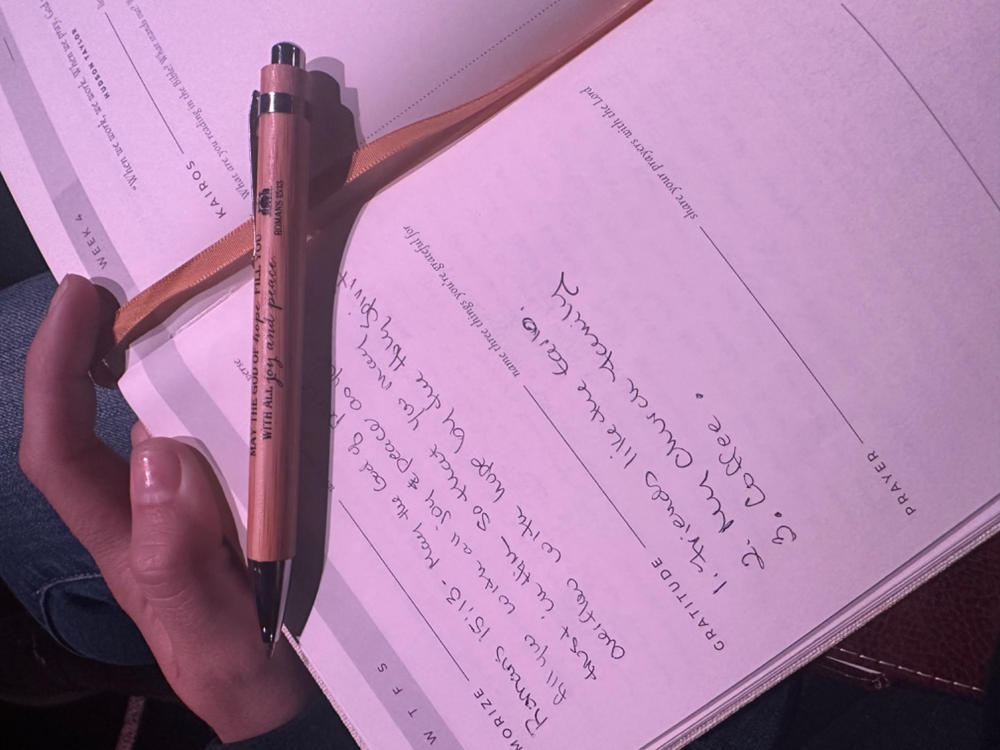 "When we work, we work. When we pray, God
HUDSON TAYLOR
KAIROS
What are you reading in the Bible? What
WEEK 4
MAY THE GOD OF hope FILL YOU
WITH ALL joy and peace
ROMANS 15:13
W T F S
MORIZE
Romans 15:13 - May the God of
fill you with all joy & peace as you
trust in Him so that you may
overflow with hope by the Holy Spirit
GRATITUDE
name three things you're grateful for
1. friends like the
2. New Church family
3. Coffee.
PRAYER
share your prayers with the Lord